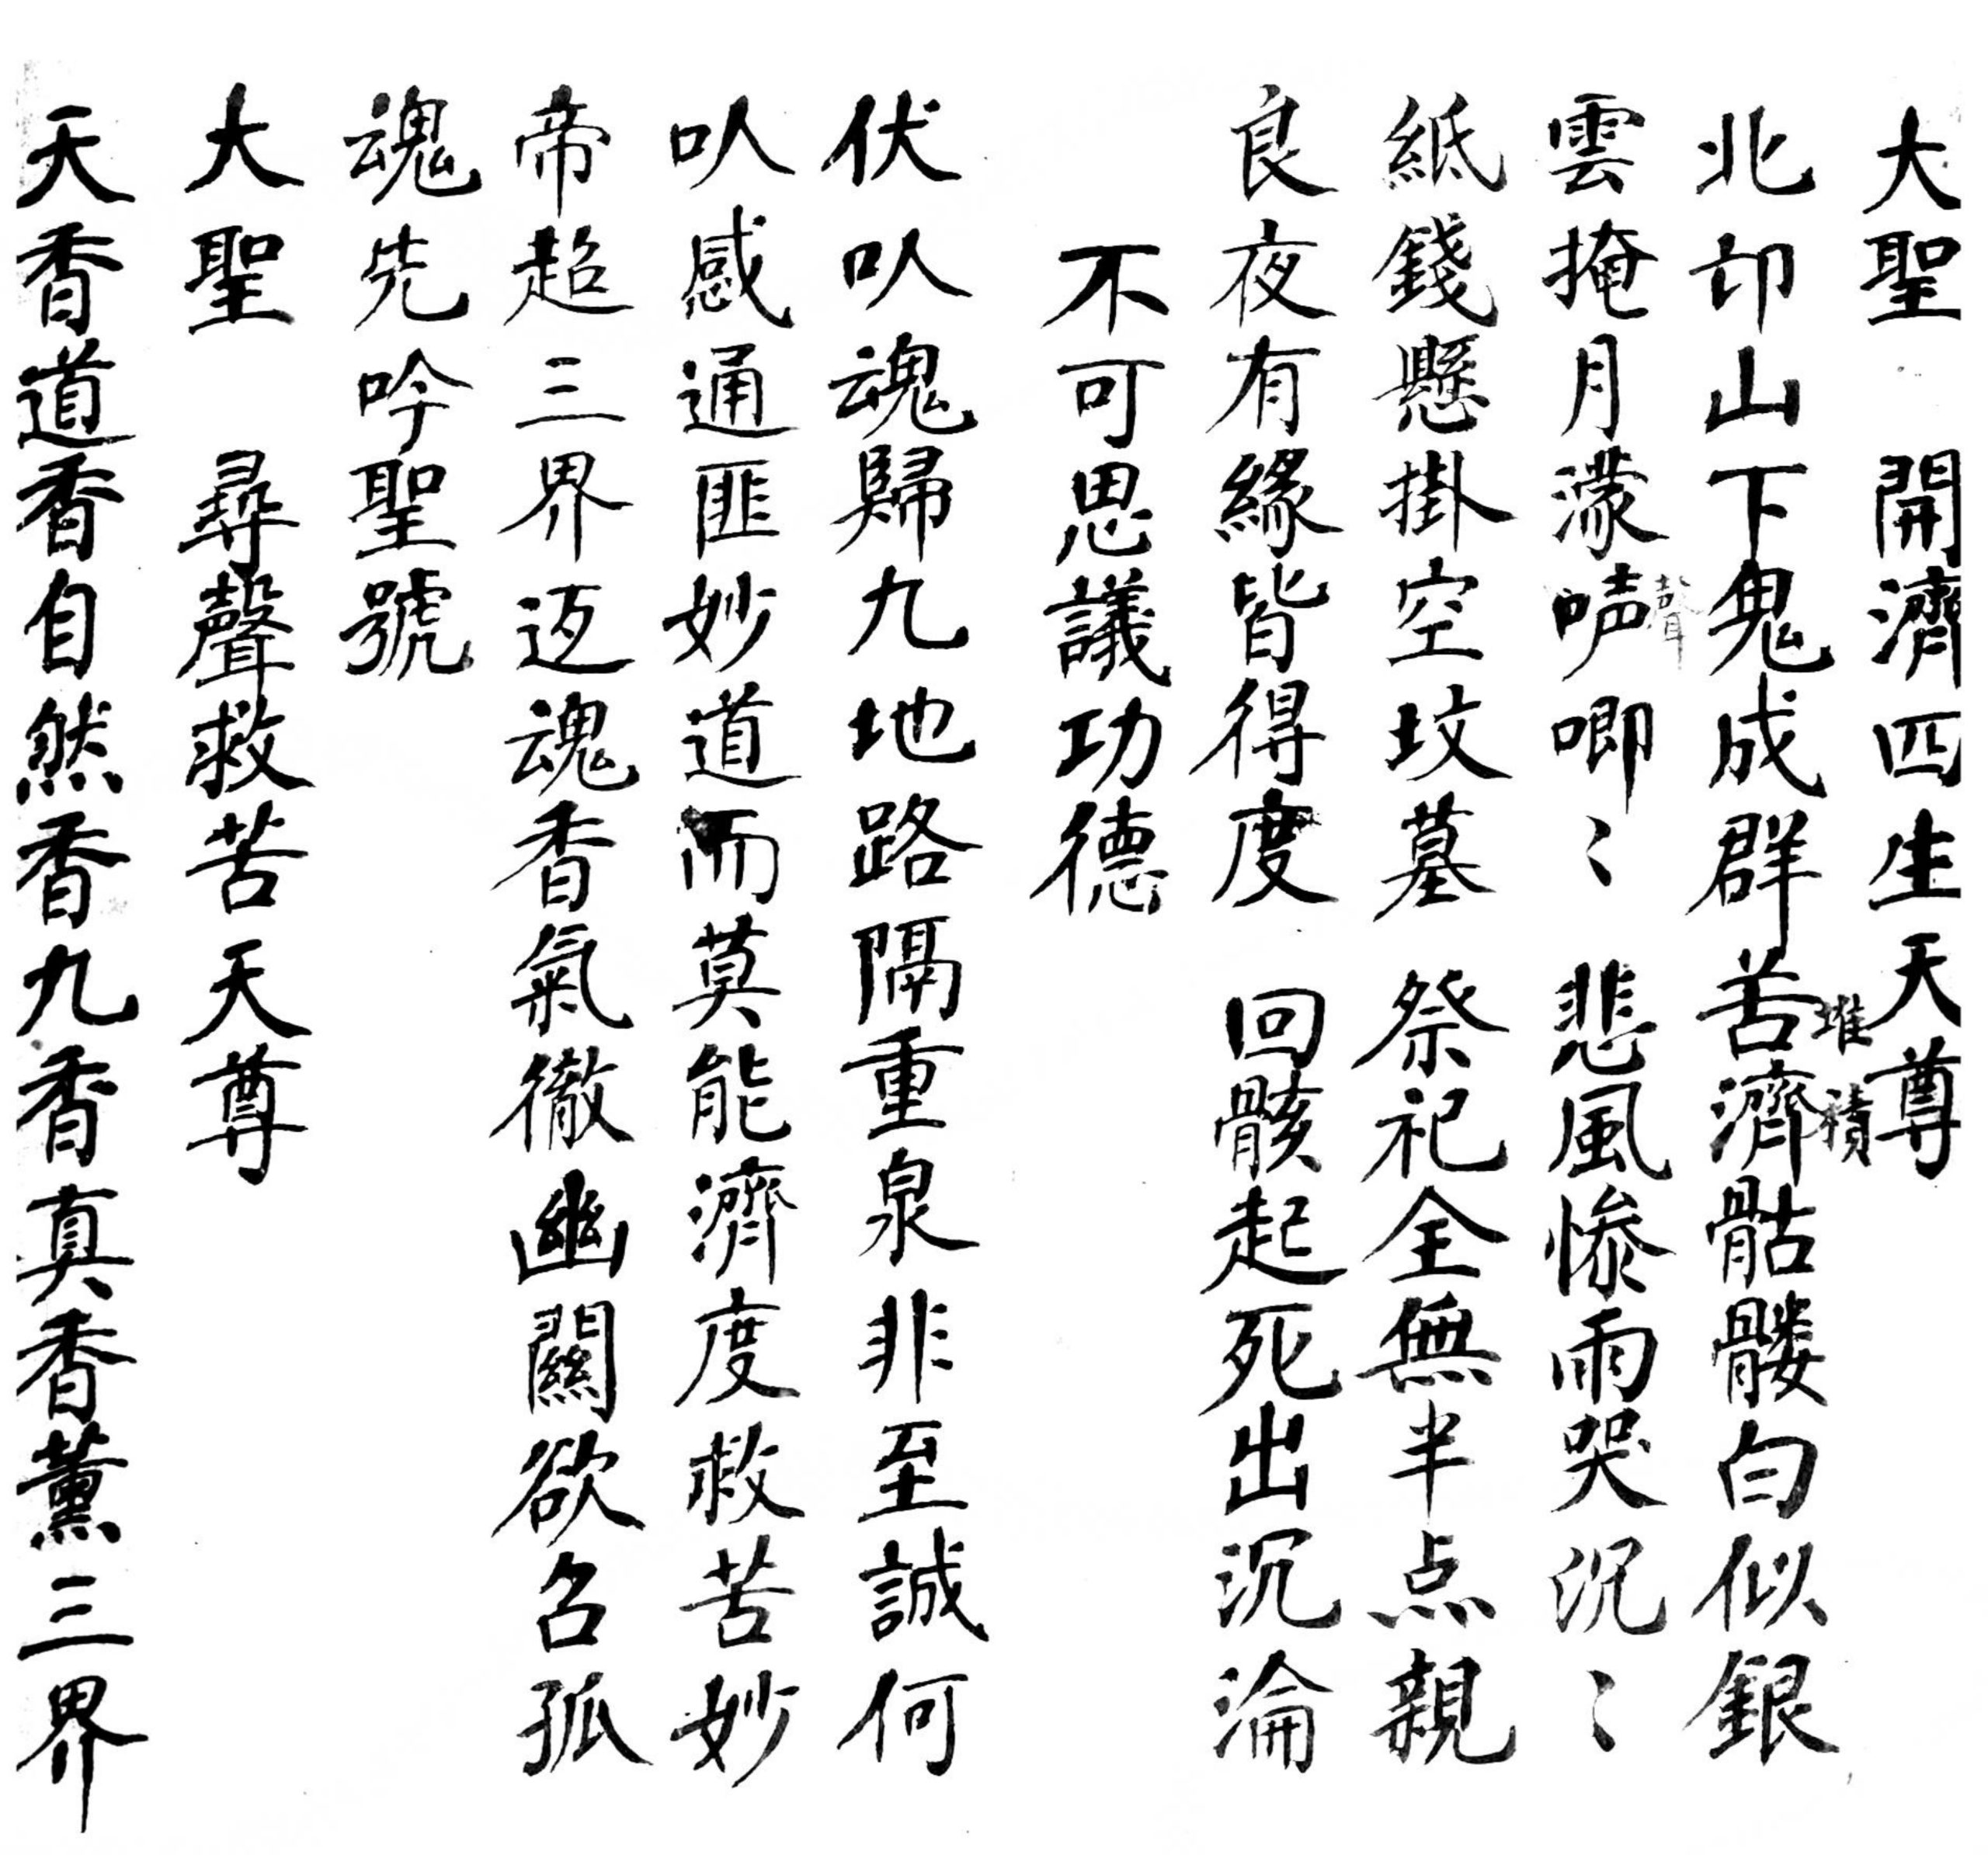 大聖 開濟四生天尊
堆積
北邙山下鬼成群苦濟骷髏白似銀
聲
雲掩月濛唧〻 悲風惨雨哭沉〻
紙錢懸掛空坟墓 祭祀全無半点親
良夜有緣皆得度 回骸起死出沉淪
不可思議功德
伏㕥魂歸九地路隔重泉非至誠何
㕥感通匪妙道而莫能濟度救苦妙
帝超三界返魂香氣徹幽關欲召孤
魂先吟聖號
大聖 尋聲救苦天尊
天香道香自然香九香真香薰三界